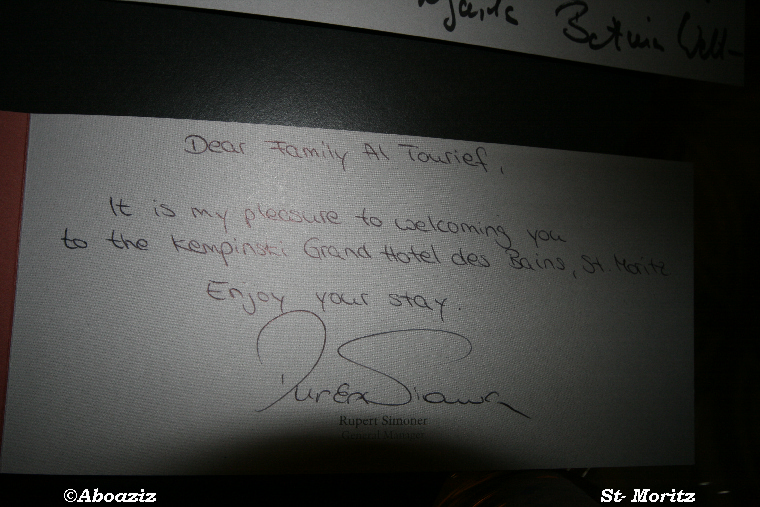 Bettina
Dear Family Al Tourief,
It is my pleasure to welcoming you
to the Kempinski Grand Hotel des Bains, St. Moritz
Enjoy your stay.
Rupert Simoner
General Manager
©Aboaziz
St- Moritz